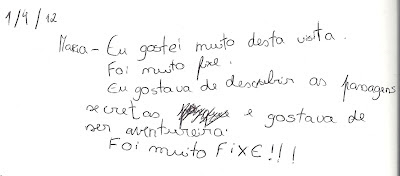 1/9/12
Maria - Eu gostei muito desta visita.
Foi muito fixe.
Eu gostava de descubrir as passagens
secretas e gostava de
ser aventureira.
Foi muito FiXE!!!